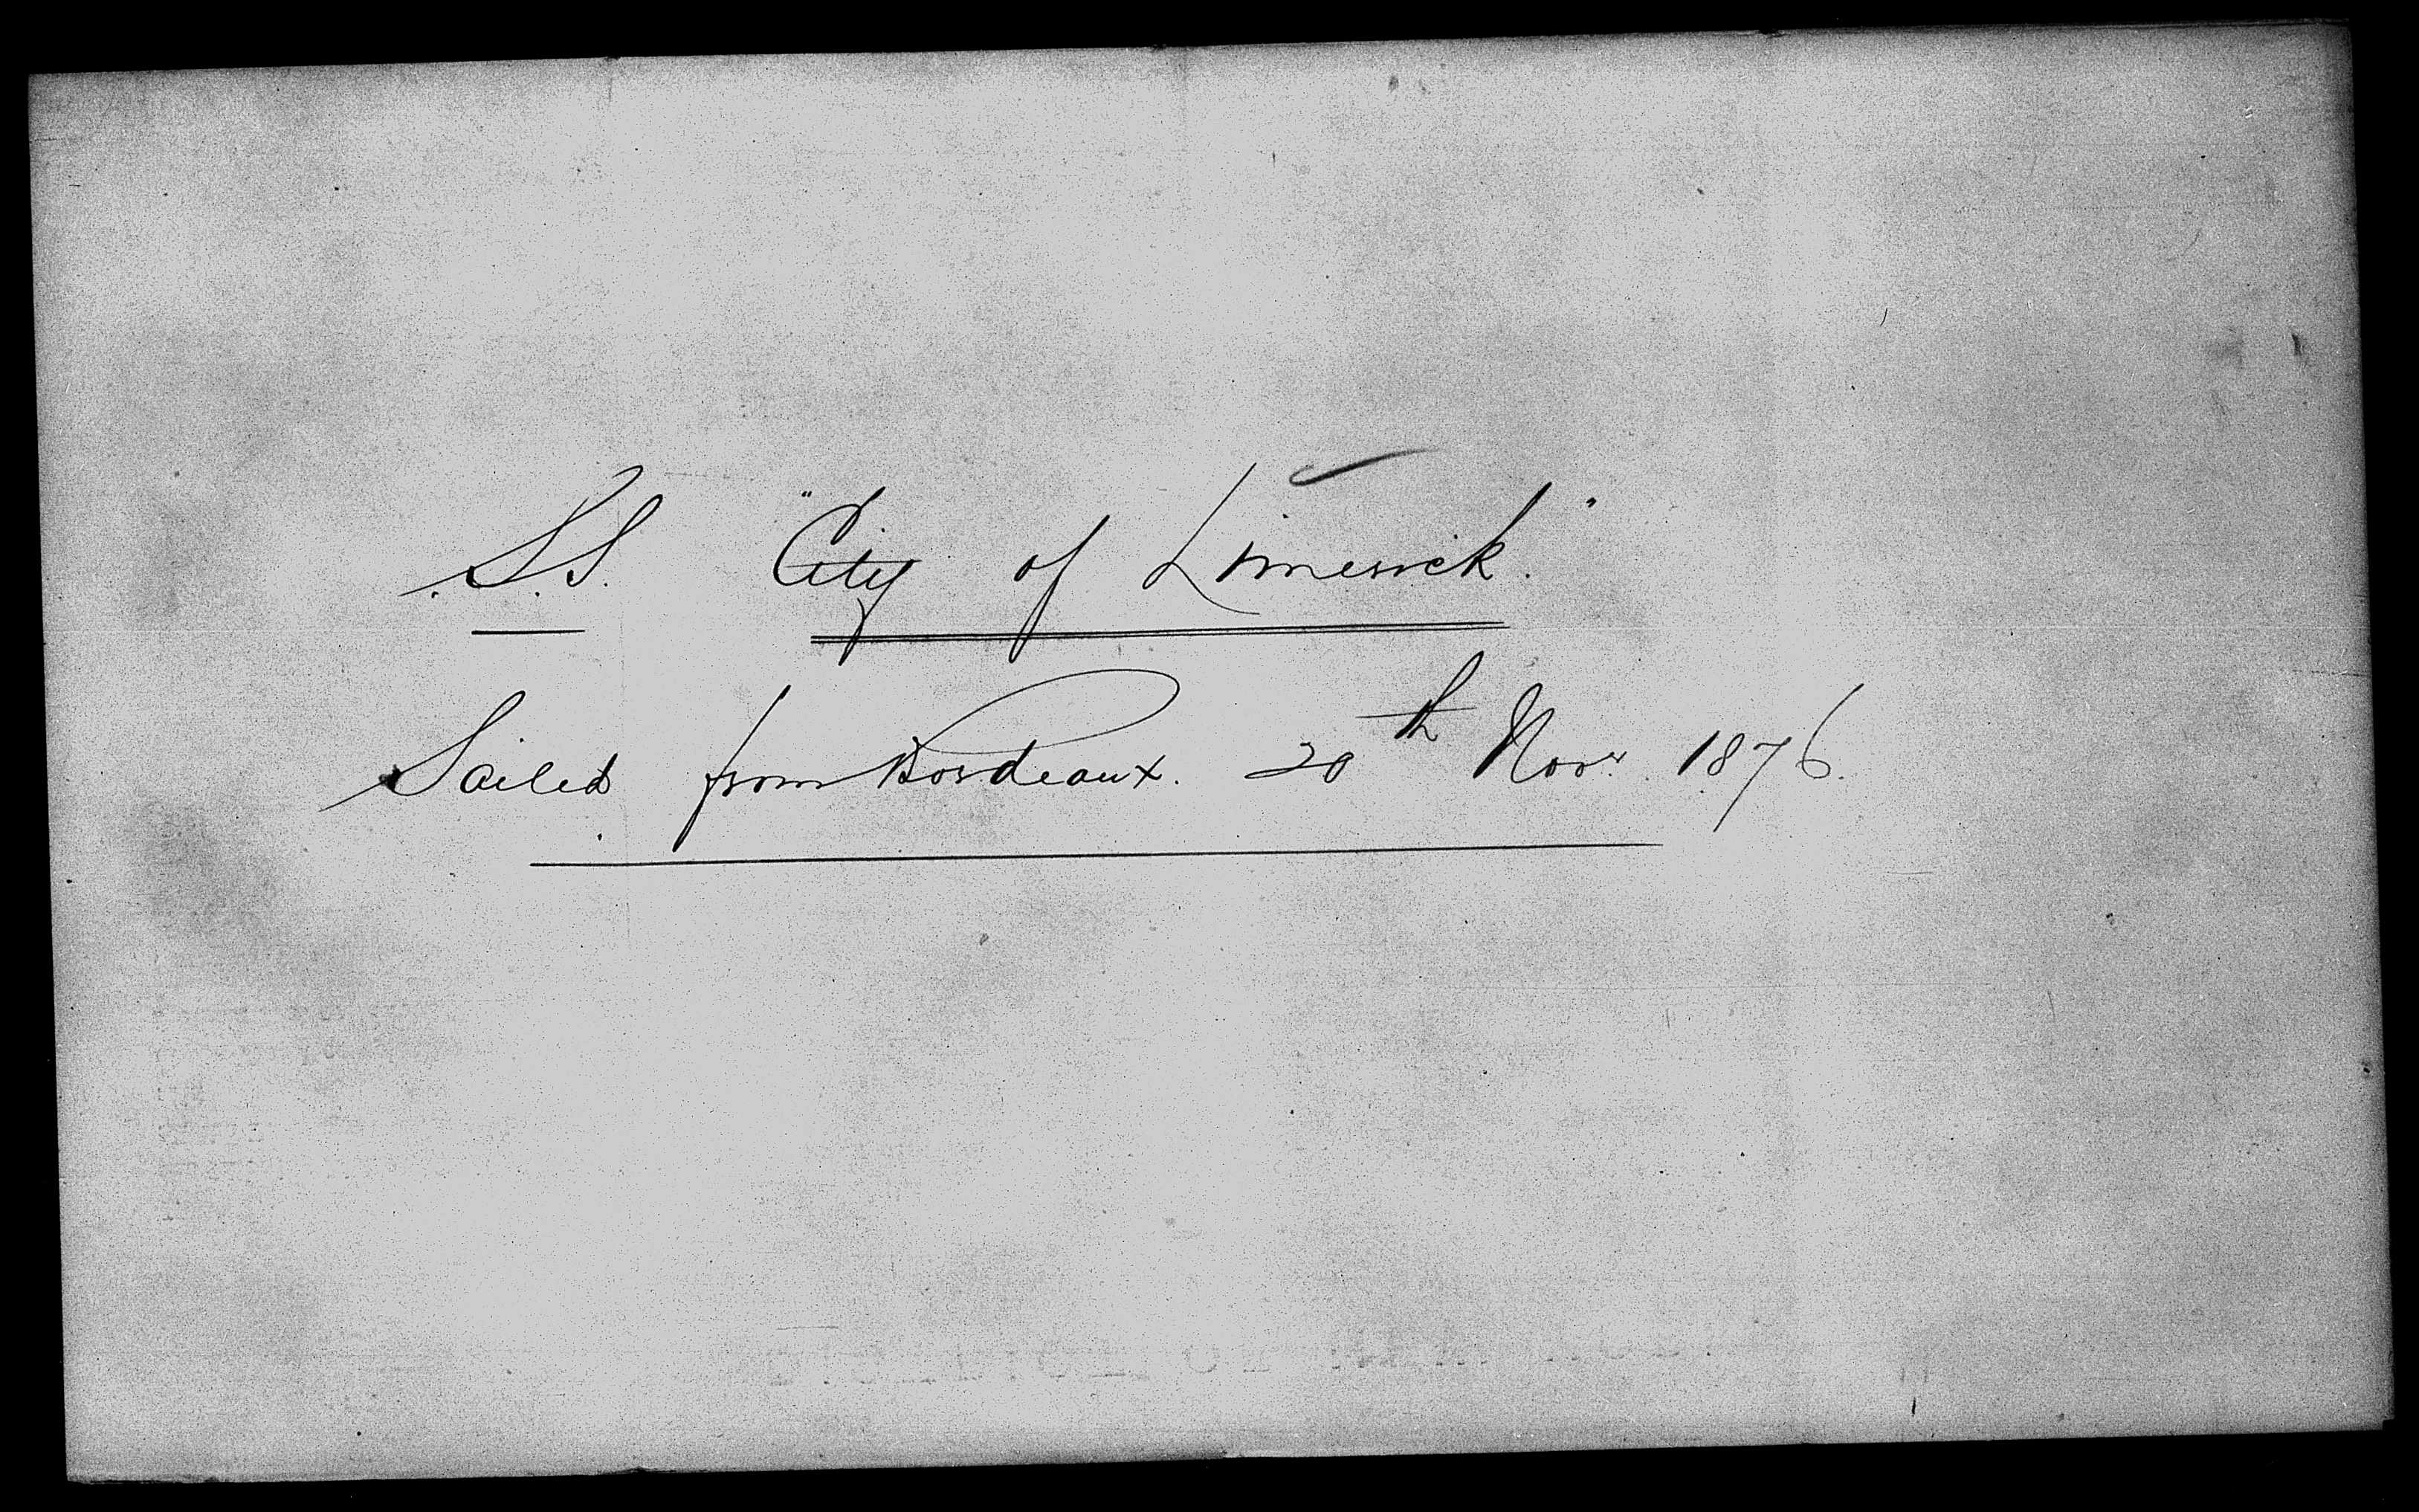 S.S. "City of Limerick."
Sailed from Bordeaux. 20th Novr. 1876.